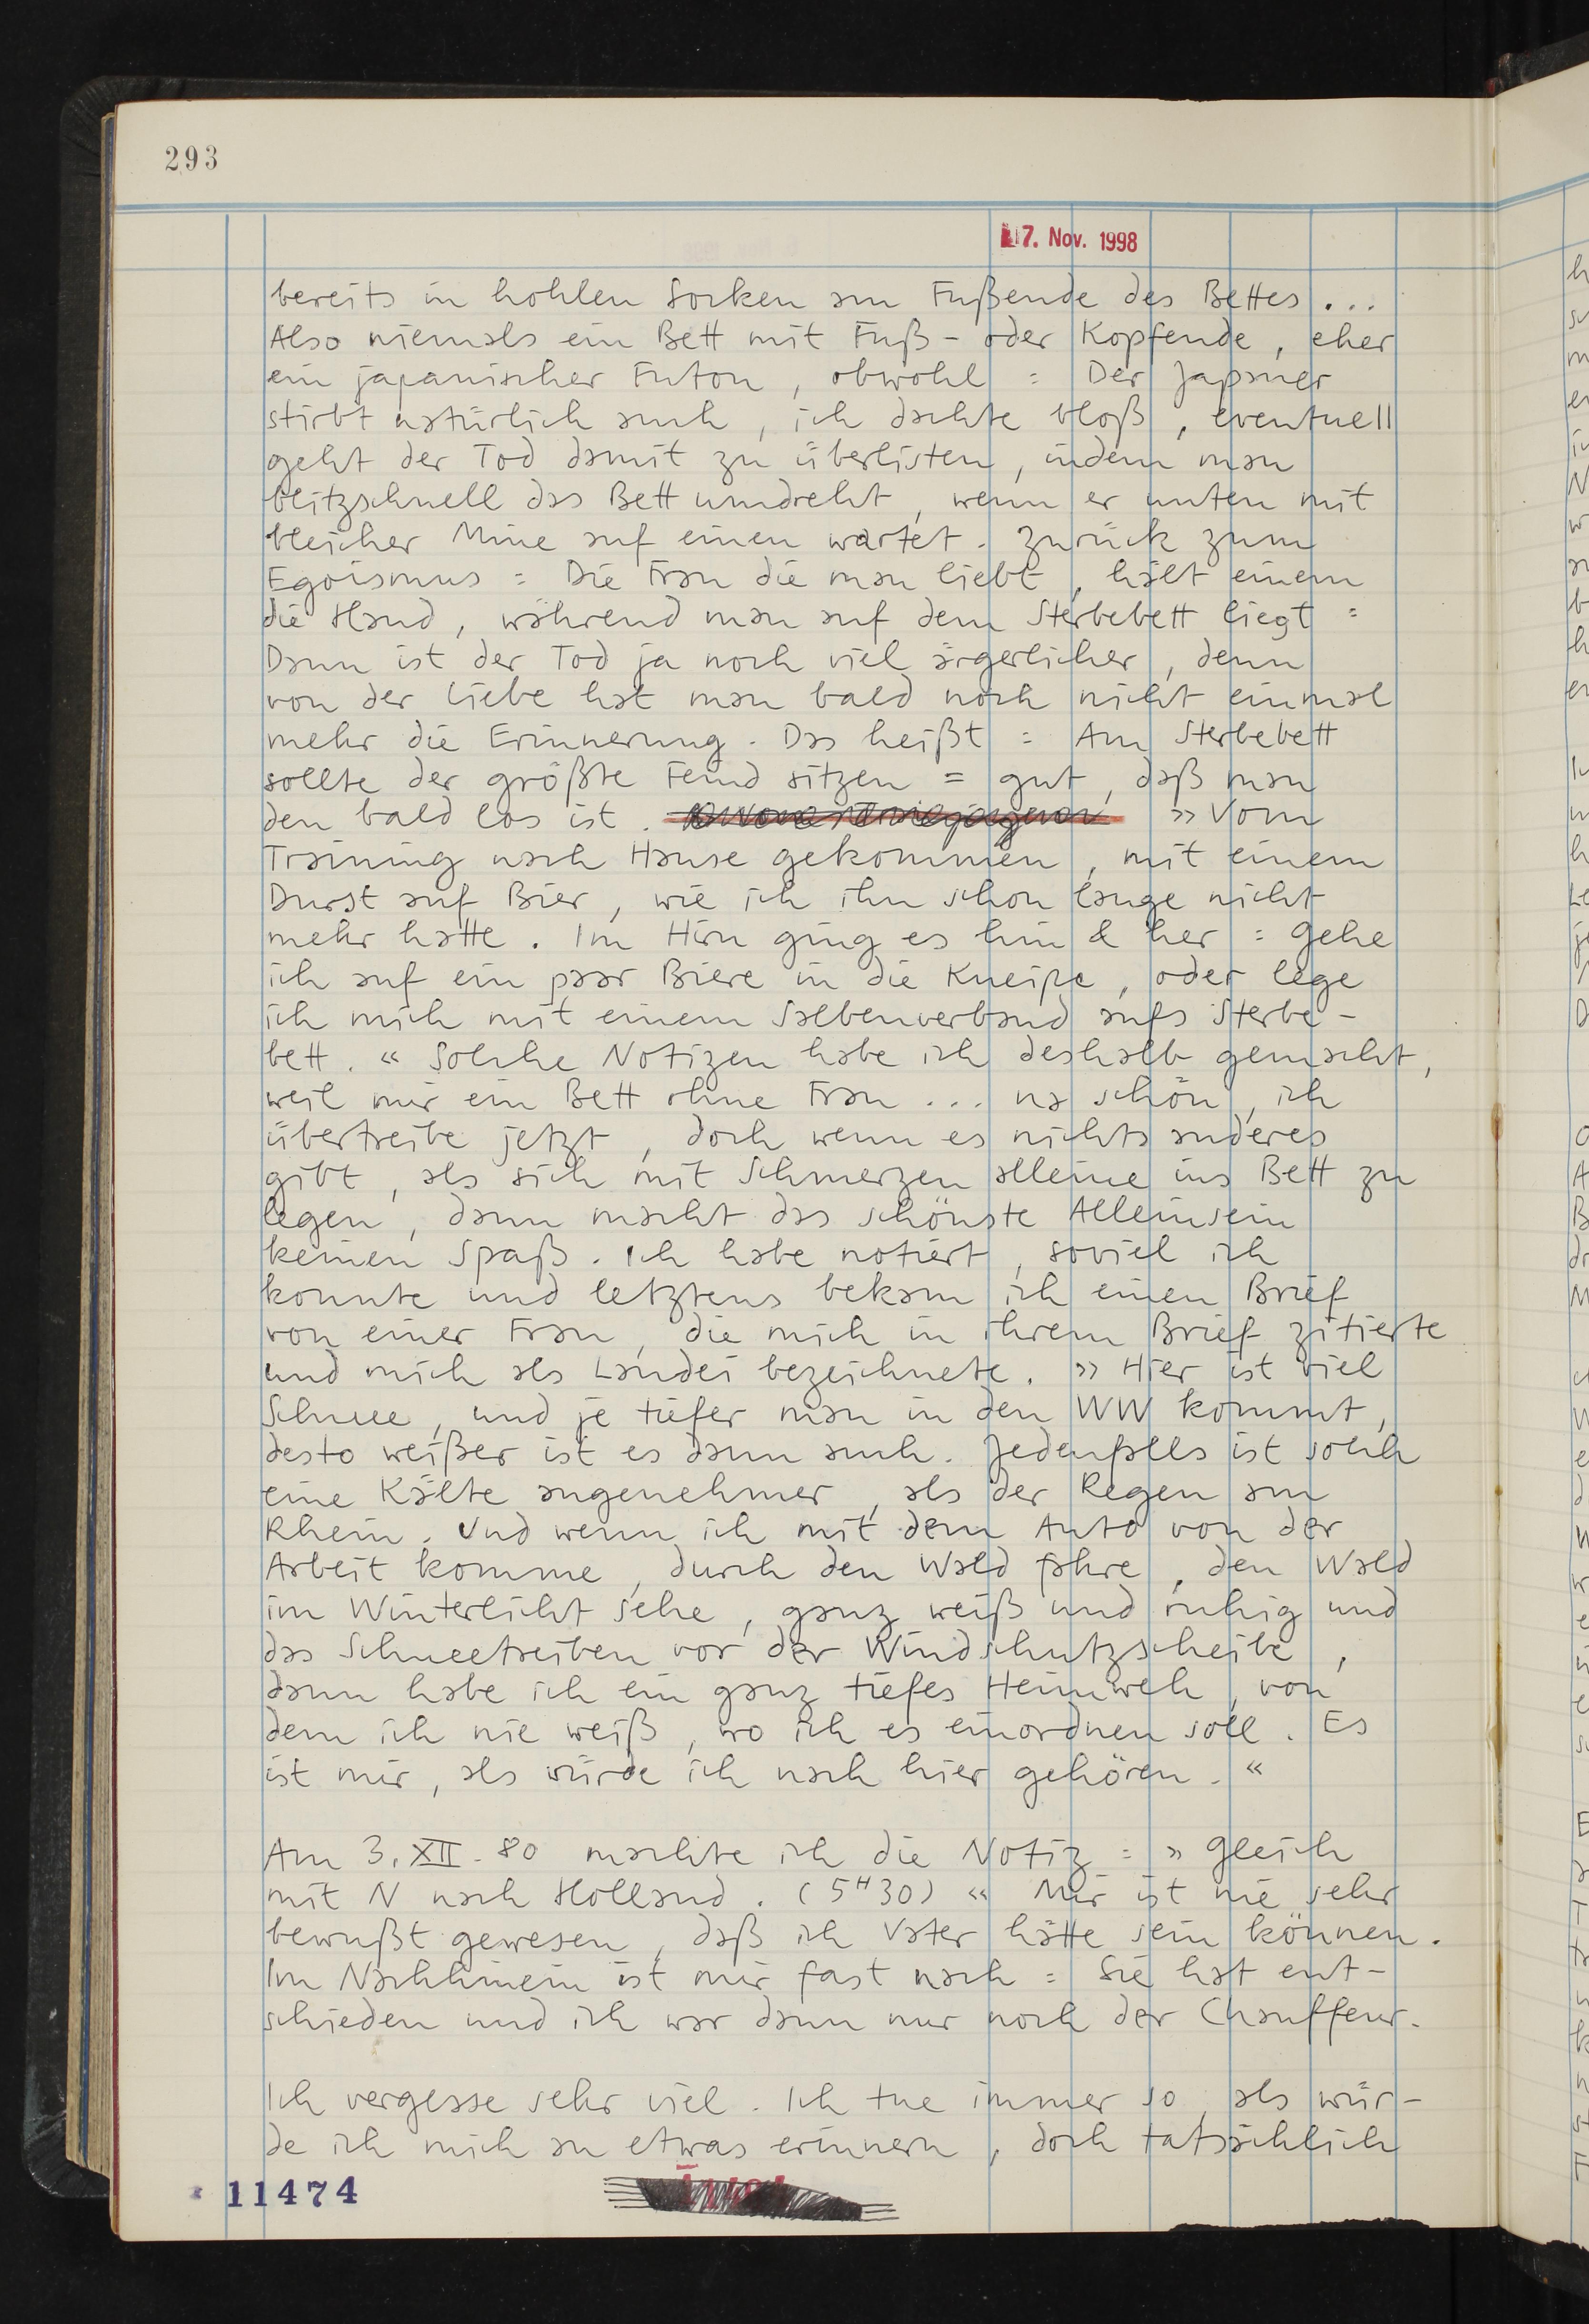 293
17. Nov. 1998
bereits in hohlen Socken am Fußende des Bettes ...
Also niemals ein Bett mit Fuß- oder Kopfende, eher
ein japanischer Futon, obwohl = Der Japaner
stirbt natürlich auch, ich dachte bloß, eventuell
geht der Tod damit zu überlisten, indem man
blitzschnell das Bett umdreht, wenn er unten mit
bleicher Mine auf einen wartet. Zurück zum
Egoismus = Die Frau die man liebt, hält einem
die Hand, während man auf dem Sterbebett liegt =
Dann ist der Tod ja noch viel ärgerlicher, denn
von der Liebe hat man bald noch nicht einmal
mehr die Erinnerung. Das heißt = Am Sterbebett
sollte der größte Feind sitzen = gut, daß man
den bald los ist. »Vom
Training nach Hause gekommen, mit einem
Durst auf Bier, wie ich ihn schon lange nicht
mehr hatte. Im Hirn ging es hin & her = Gehe
ich auf ein paar Biere in die Kneipe, oder lege
ich mich mit einem Salbenverband aufs Sterbe-
bett.« Solche Notizen habe ich deshalb gemacht,
weil mir ein Bett ohne Frau ... na schön, ich
übertreibe jetzt, doch wenn es nichts anderes
gibt, als sich mit Schmerzen alleine ins Bett zu
legen, dann macht das schönste Alleinsein
keinen Spaß. Ich habe notiert, soviel ich
konnte und letztens bekam ich einen Brief
von einer Frau, die mich in ihrem Brief zitierte
und mich als Landei bezeichnete. »Hier ist viel
Schnee, und je tiefer man in den WW kommt,
desto weißer ist es dann auch. Jedenfalls ist solch
eine Kälte angenehmer, als der Regen am
Rhein. Und wenn ich mit dem Auto von der
Arbeit komme, durch den Wald fahre, den Wald
im Winterlicht sehe, ganz weiß und ruhig und
das Schneetreiben vor der Windschutzscheibe,
dann habe ich ein ganz tiefes Heimweh, von
dem ich nie weiß, wo ich es einordnen soll. Es
ist mir, als würde ich nach hier gehören.«
Am 3. XII. 80 machte ich die Notiz = »Gleich
mit N nach Holland. (5H30)« Mir ist nie sehr
bewußt gewesen, daß ich Vater hätte sein können.
Im Nachhinein ist mir fast nach = Sie hat ent-
schieden und ich war dann nur noch der Chauffeur.
Ich vergesse sehr viel. Ich tue immer so, als wür-
de ich mich an etwas erinnern, doch tatsächlich
11474